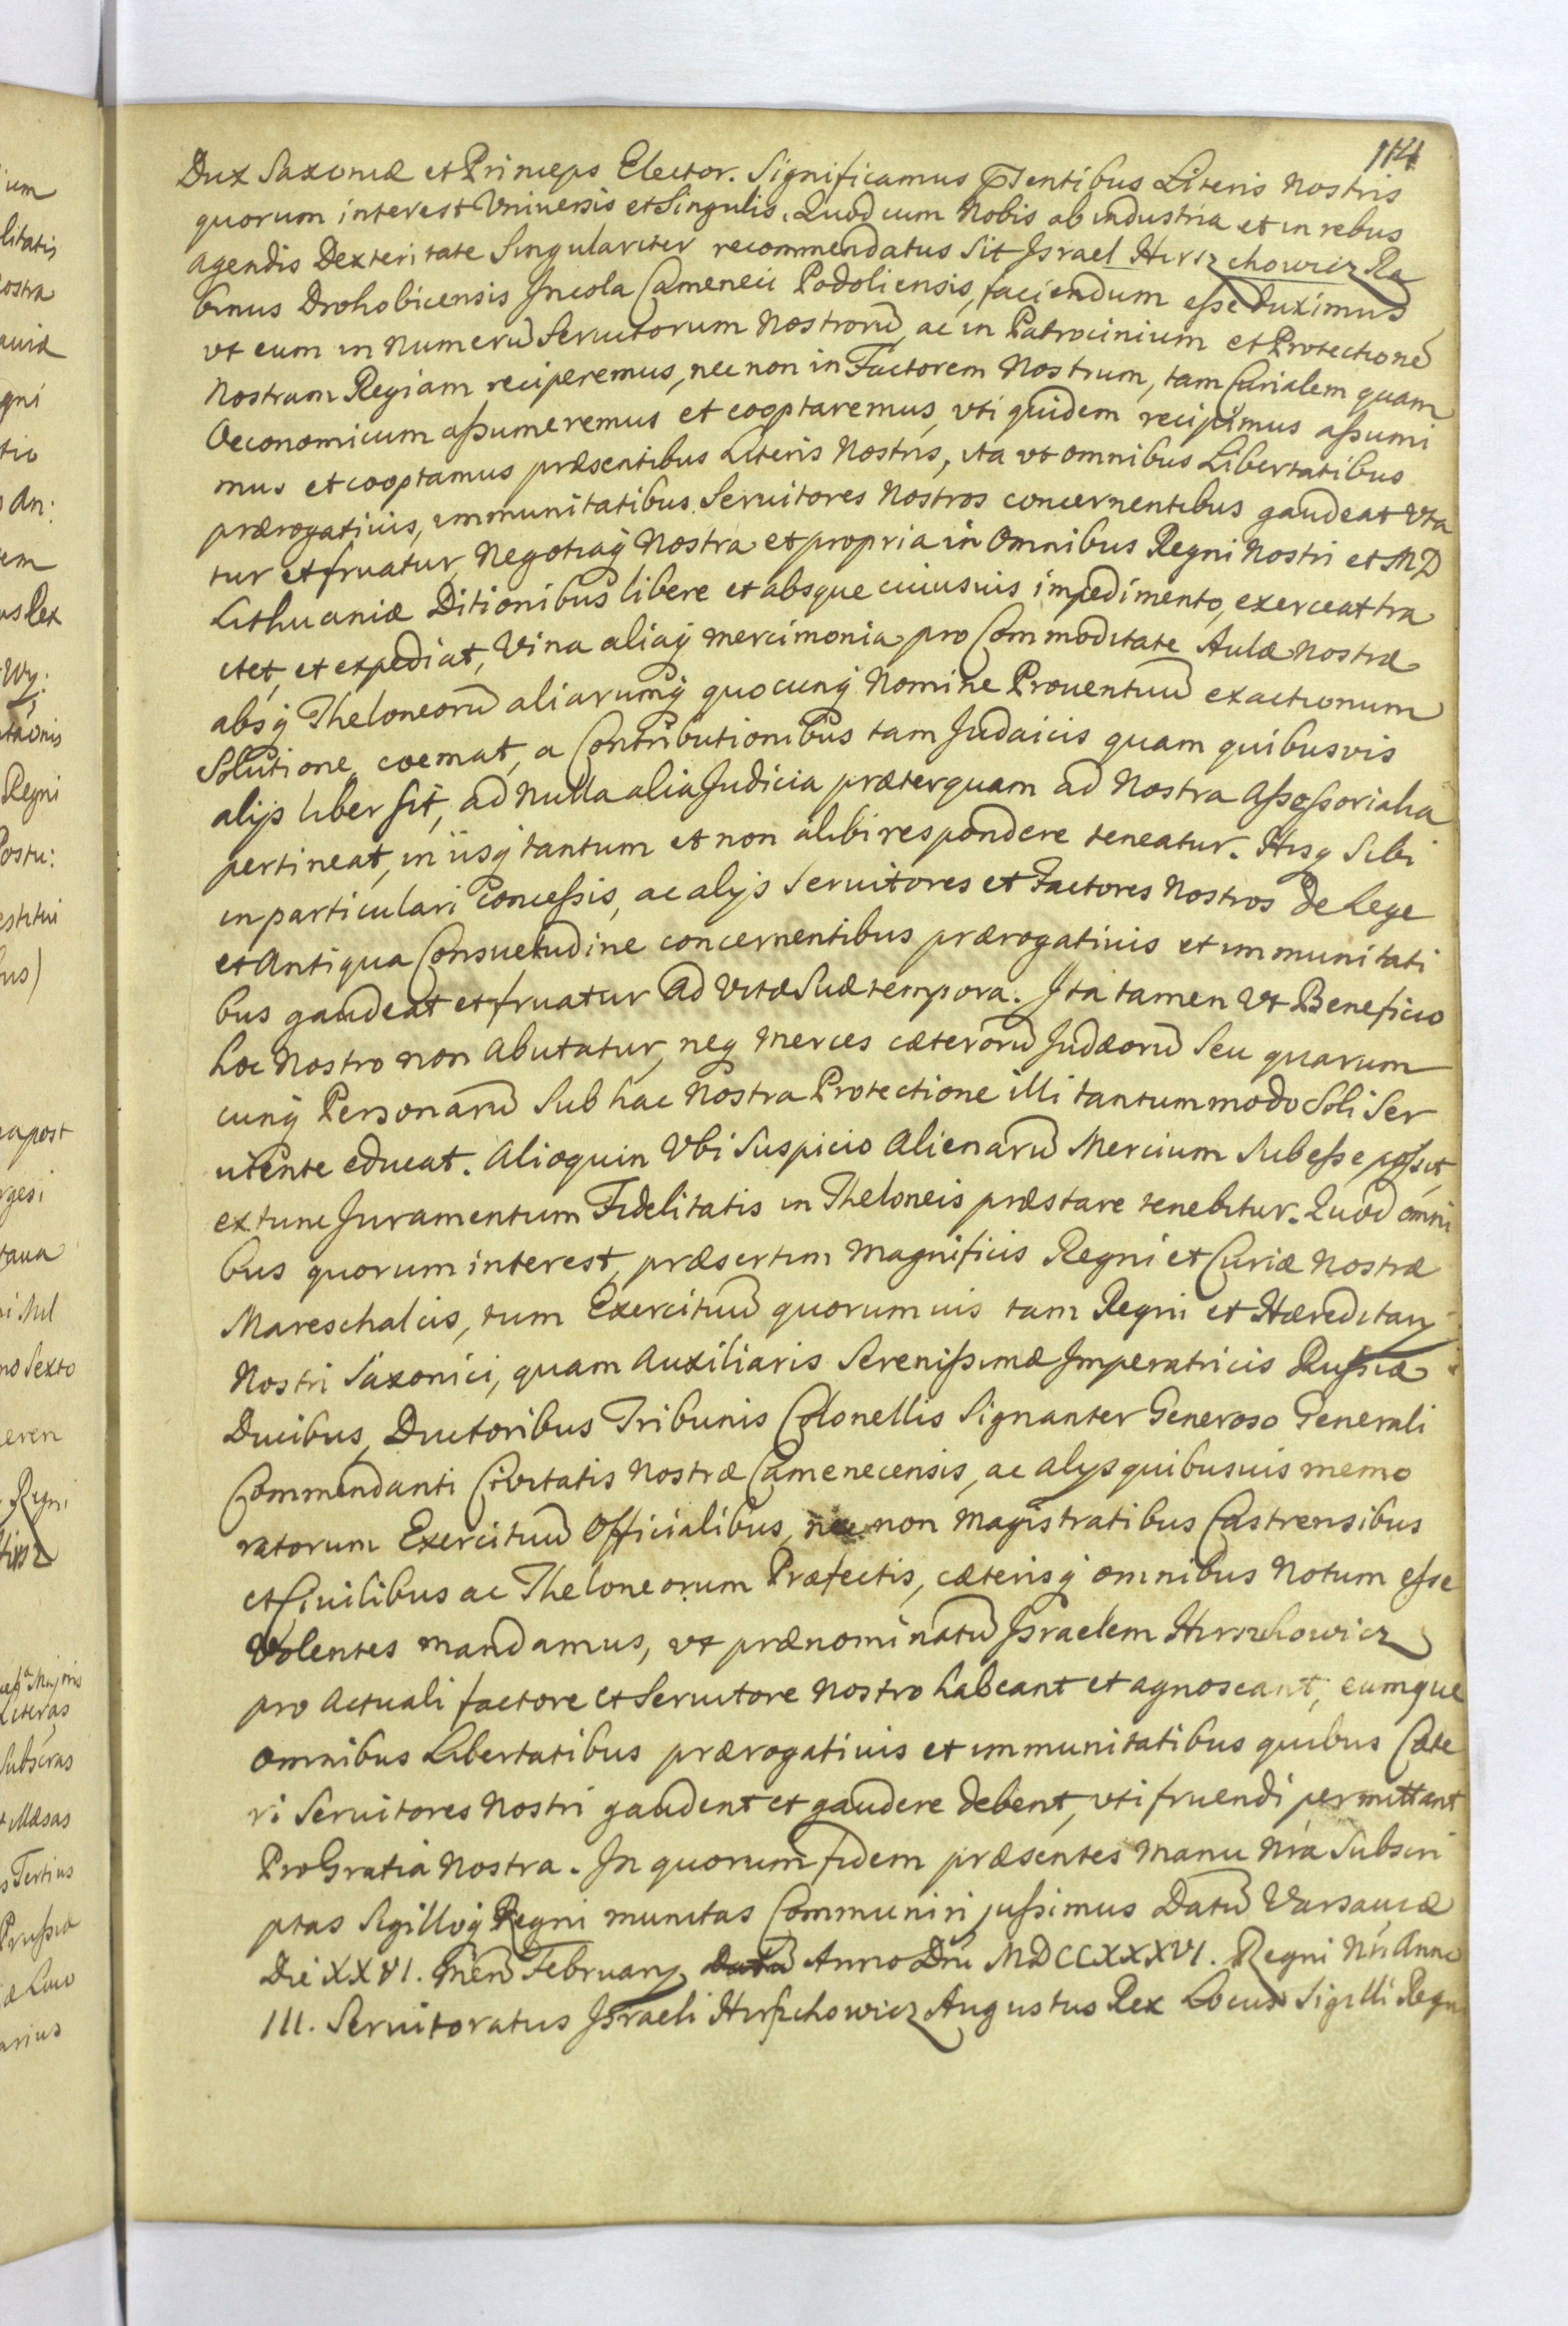 114
Dux Saxoniæ et Princeps Elector. Significamus Pñtentibus Literis Nostris
quorum interest Vniuersis et Singulis. Quod cum Nobis ab industria et in rebus
agendis Dexteritate Singulariter recommendatus Sit Israel Hirszchowicz Ra
binus Drohobicensis Incola Camenecii Podoliensis, faciendum esse duximus
vt eum in Numerū Seruitorum Nostrorū, ac in Patrocinium et Protectionē
Nostram Regiam reciperemus, nec non in Factorem Nostrum, tam Curialem quam
Oeconomicum assumeremus et cooptaremus, vti quidem recipimus assumi
mus et cooptamus præsentibus Literis Nostris, ita vt omnibus Libertatibus
prærogatiuis, immunitatibus Seruitores Nostros concernentibus gaudeat Vta
tur et fruatur, Negotiaq́ Nostra et propria in Omnibus Regni Nostri et M D
Lithuaniæ Ditionibus libere et absque cuiusuis impedimento, exerceat tra
ctet, et expediat, Vina aliaq́ mercimonia pro Commoditate Aulæ Nostræ
absq́ Theloneorū aliarumq́ quocunq́ Nomine Prouentuū exactionum
Solutione coemat, a Contributionibus tam Judaicis quam quibusvis
alijs liber sit, ad Nulla alia Judicia præterquam ad Nostra Assessorialia
pertineat, in iisq́ tantum et non alibi respondere teneatur. Hisq́ Sibi
in particulari Concessis, ac alijs Seruitores et Factores Nostros de Lege
et Antiqua Consuetudine concernentibus prærogatiuis et immunitati
bus gaudeat et fruatur ad Vitæ Suæ tempora. Ita tamen Vt Beneficio
hoc Nostro non Abutatur, neq́ Merces cæterorū Judæorū Seu quarum
cunq́ Personarū Sub hac Nostra Protectione illi tantummodo Soli Ser
uiente educat. Alioquin Vbi Suspicio Alienarū Mercium Subesse possit,
extunc Juramentum Fidelitatis in Theloneis præstare tenebitur. Quod omni
bus quorum interest, præsertim Magnificis Regni et Curiæ Nostræ
Mareschalcis, tum Exercituū quorumuis tam Regni et Hæreditarij
Nostri Saxonici, quam Auxiliaris Serenissimæ Imperatricis Russiæ
Ducibus, Ductoribus Tribunis Colonellis Signanter Generoso Generali
Commendanti Ciuitatis Nostræ Camenecensis, ac alijs quibusuis memo
ratorum Exercituū Officialibus, nec non Magistratibus Castrensibus
et Ciuilibus ac Theloneorum Præfectis, cæterisq́ omnibus Notum esse
Volentes mandamus, vt prænominatū Israelem Hirszhowicz
pro Actuali factore et Seruitore Nostro habeant et agnoscant, eumque
omnibus Libertatibus prærogatiuis et immunitatibus quibus Cæte
ri Seruitores Nostri gaudent et gaudere debent, vti fruendi permittant
Pro Gratia Nostra. In quorum fidem præsentes Manu Nra Subscri
ptas Sigilloq́ Regni munitas Communiri jussimus Datū Varsauiæ
Die XXVI. Men̄ Februarij Anno Dn̄i MDCCXXXVI. Regni Nri Anno
III. Seruitoratus Israeli Hirszchowicz Augustus Rex Locus Sigilli Regni